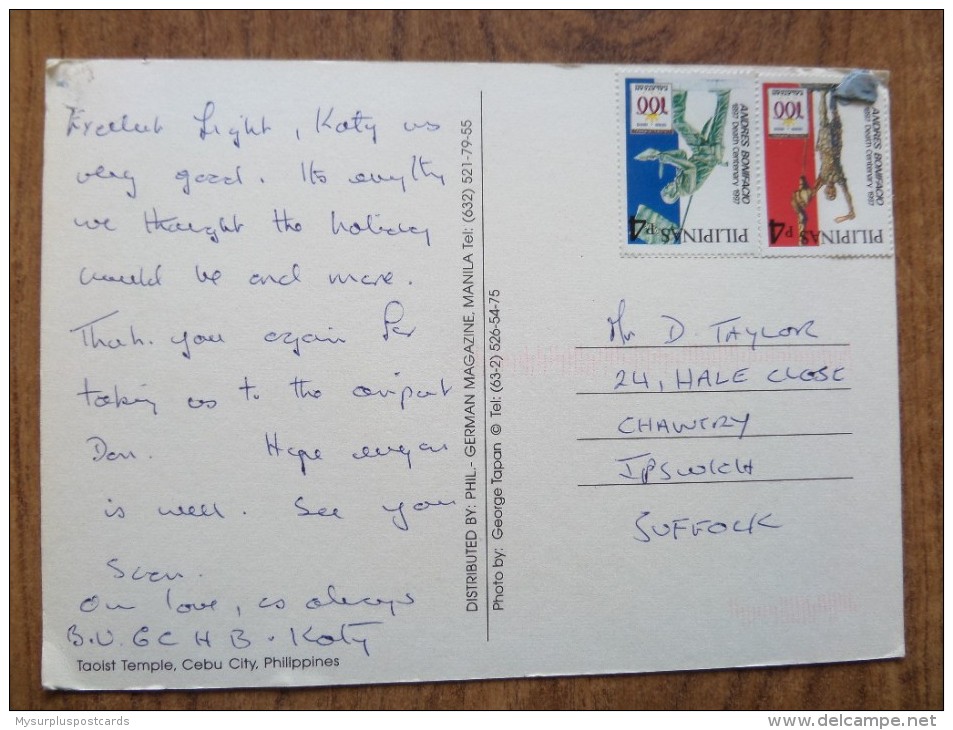 Excellent flight, Katy was
very good. Its everything
we thought the holiday
would be and more.
Thank you again for
taking us to the airport
Don. Hope everyone
is well. See you
soon.
Our love, as always
Katy
Taoist Temple, Cebu City, Philippines
DISTRIBUTED BY: PHIL.- GERMAN MAGAZINE, MANILA Tel: (632) 521-79-55
Photo by: George Tapan © Tel: (63-2) 526-54-75
PILIPINAS P4
ANDRES BONIFACIO
1997 Death Centenary 1997
100
PILIPINAS P4
ANDRES BONIFACIO
1997 Death Centenary 1997
100
Mr D. TAYLOR
24, HALE CLOSE
CHANTRY
IPSWICH
SUFFOLK
Mysurpluspostcards
www.delcampe.net